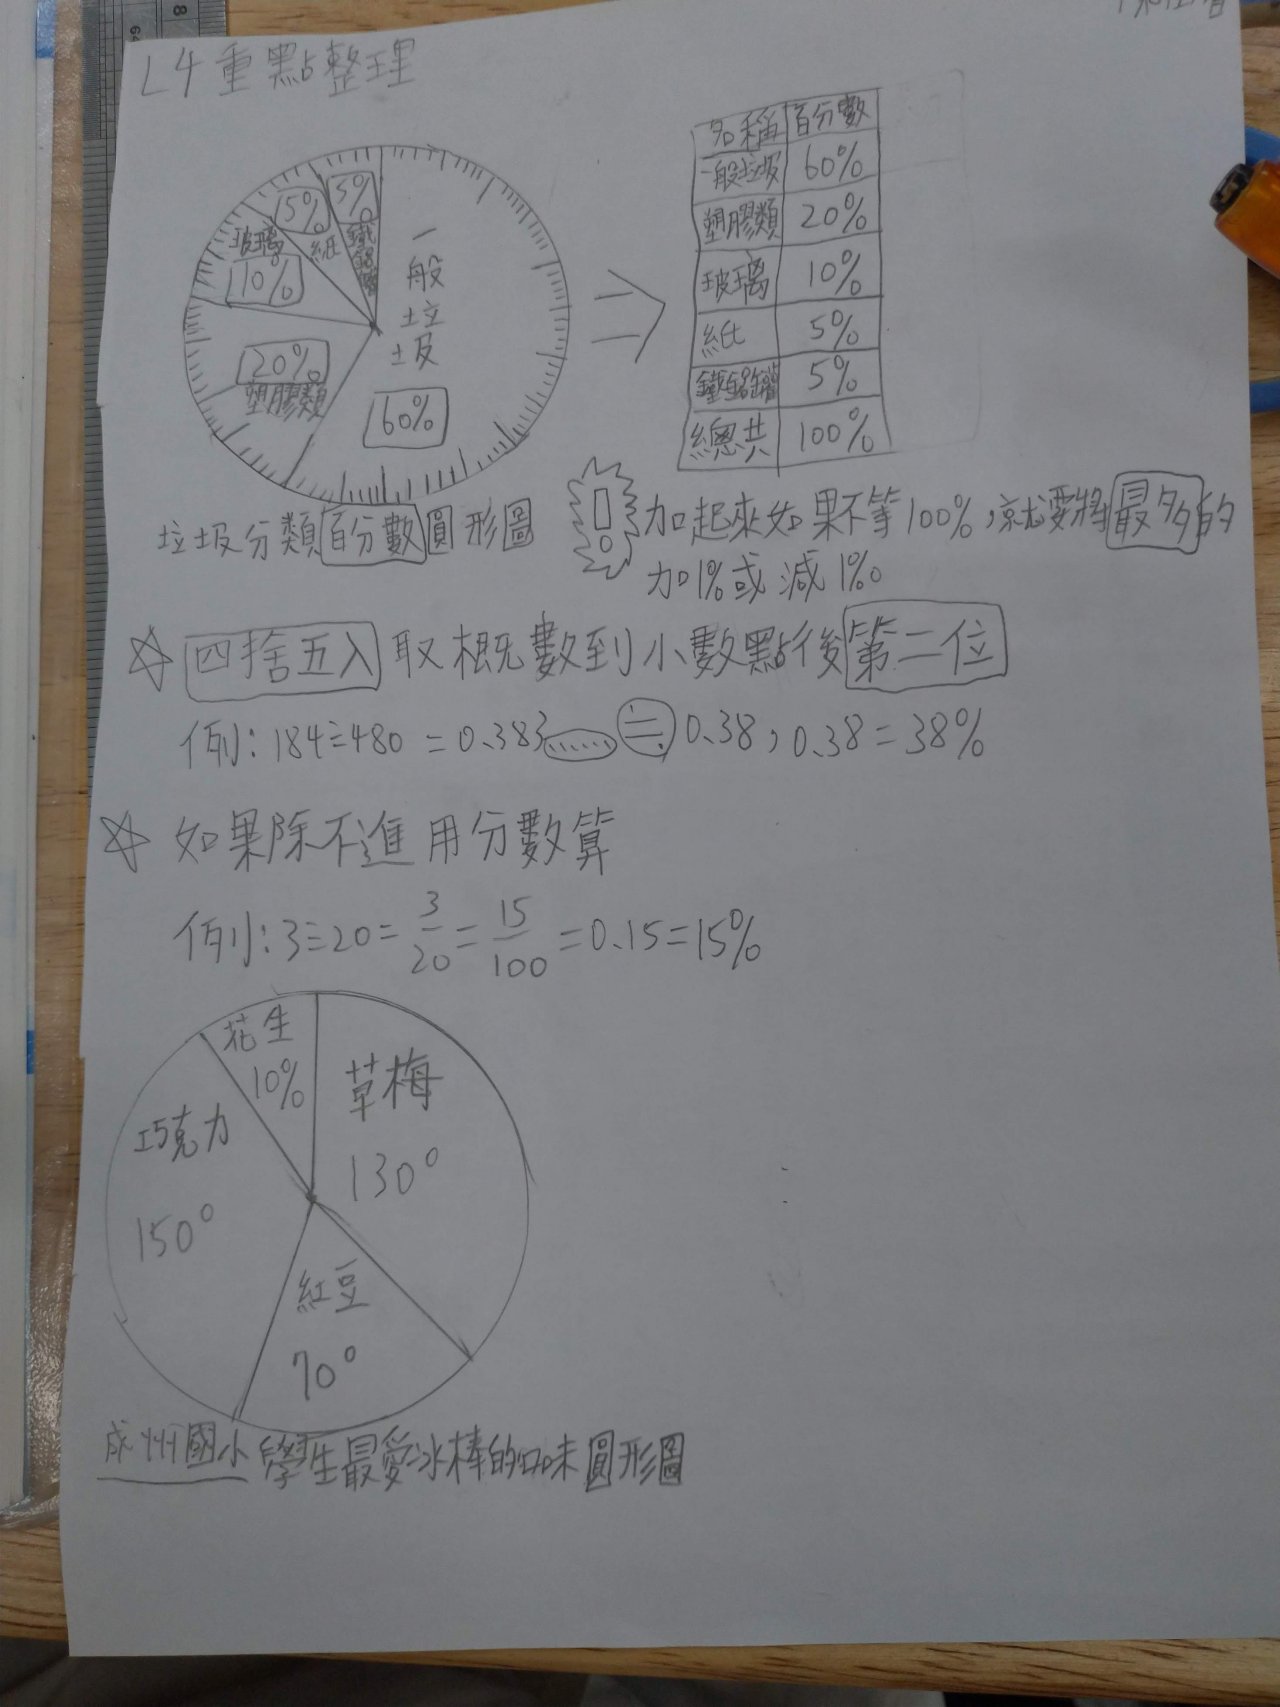 L4重點整理
5% 5%
玻璃 紙 鐵鋁罐
10%
20%
塑膠類
一般垃圾
60%
名稱 百分數
一般垃圾 60%
塑膠類 20%
玻璃 10%
紙 5%
鐵鋁罐 5%
總共 100%
垃圾分類百分數圓形圖
加起來如果不等100%,就要將最多的
加1%或減1%
☆ 四捨五入 取概數到小數點後第二位
例:184÷480=0.383……≒0.38,0.38=38%
☆ 如果除不進用分數算
例:3÷20=3/20=15/100=0.15=15%
花生
10%
草梅
130°
巧克力
150°
紅豆
70°
成州國小學生最愛冰棒的口味圓形圖
8